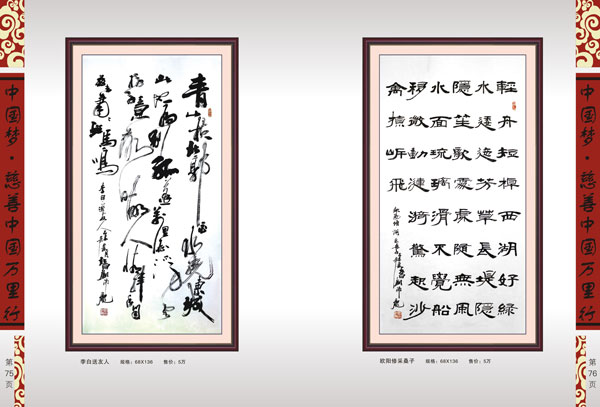 中国梦·慈善中国万里行
第
75
页
青山橫北郭白水绕東城
此地一为别孤蓬万里征浮云
游子意落日故人情挥手自
兹去萧萧班马鸣
李白送友人
李白送友人 规格：68X136 售价：5万
輕舟短棹西湖好綠
水逶迤芳草長堤隱
隱笙歌處處隨無風
水面琉璃滑不覺船
移微動漣漪驚起沙
禽掠岸飛
欧阳修采桑子 规格：68X136 售价：5万
中国梦·慈善中国万里行
第
76
页